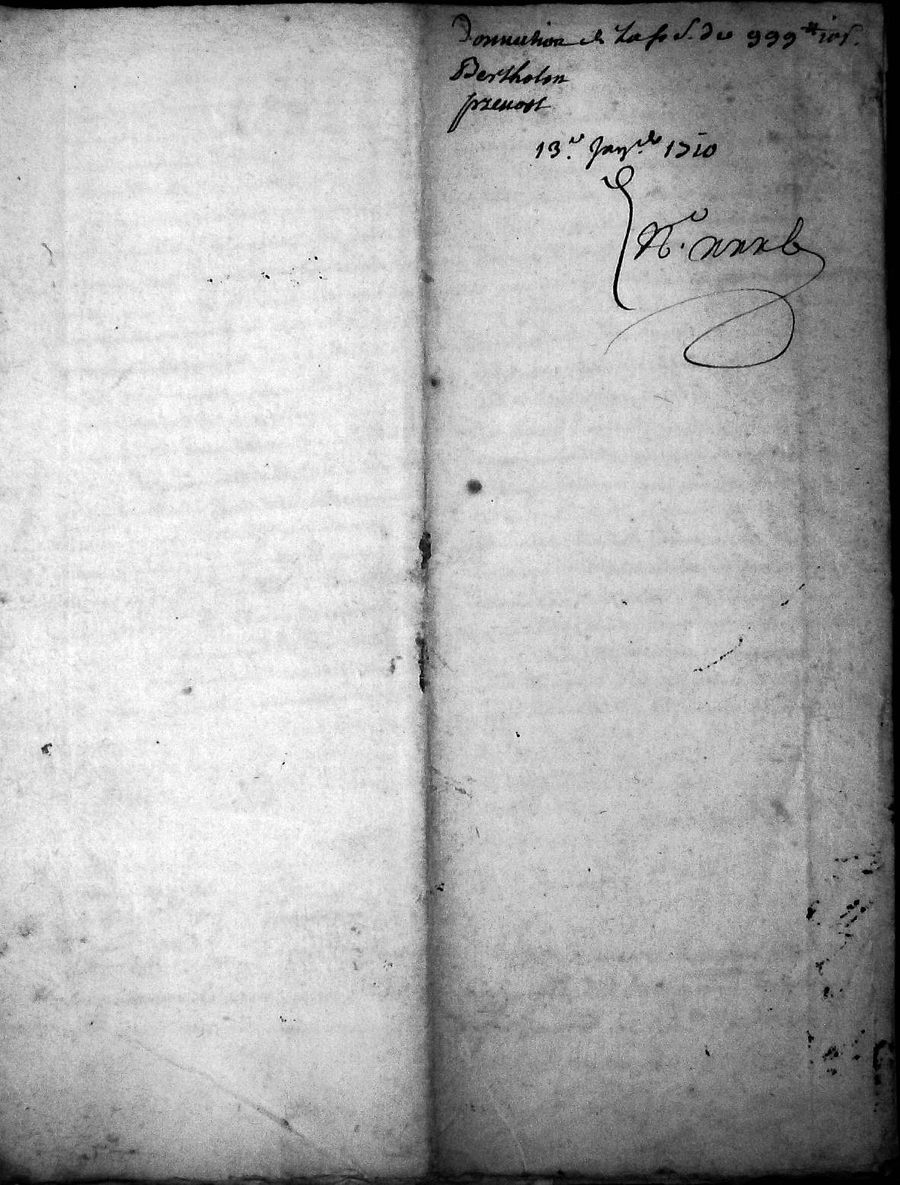 Donnation de La so. de 999# 10s.
Bertholon
prevost
13.e Janv.er 1710
N.o